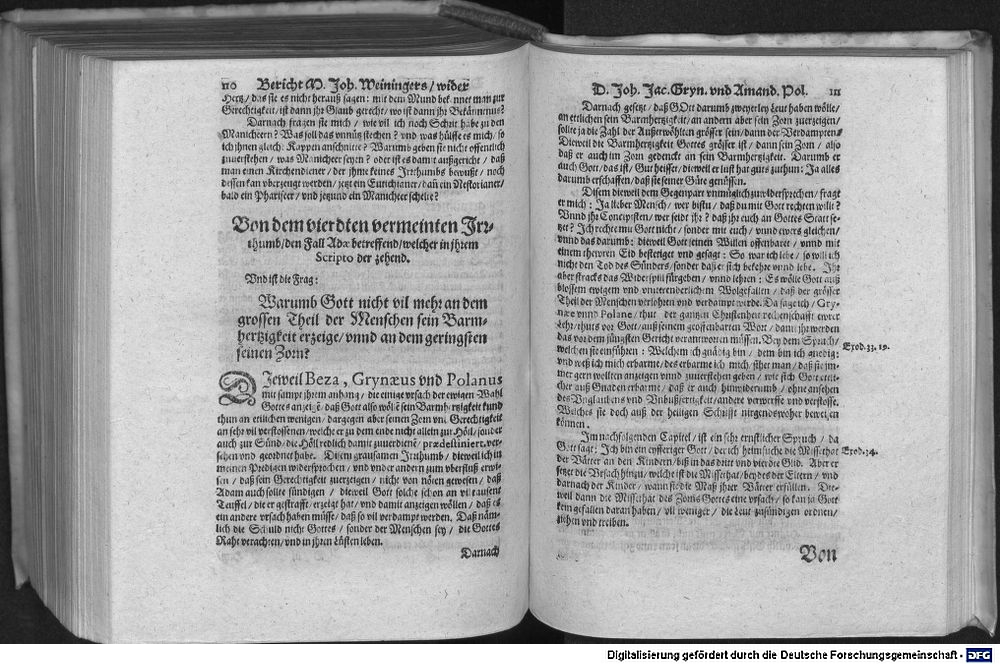 110 Bericht M. Joh. Weiningers / wider
Hertz / das sie es nicht herauß sagen: mit dem Mund bekennet man zur
Gerechtigkeit / ist dann jhr Glaub gerecht / wo ist dann jhr Bekäntnus?
Darnach fragen sie mich / wie vil ich noch Schrit habe zu den
Manicheern? Was soll das vnnütz stechen? vnd was hülffe es mich / so
ich jhnen gleich Kappen anschnitte? Warumb geben sie nicht offentlich
zuuerstehen / was Manicheer seyen? oder ist es damit außgericht / daß
man einen Kirchendiener / der jhme keines Irrthumbs bewußt / noch
dessen kan vberzeugt werden / jetzt ein Eutichianer / dañ ein Nestorianer /
bald ein Phariseer / vnd jetzund ein Manicheer schelte?
Von dem vierdten vermeinten Irr-
thumb / den Fall Adæ betreffend / welcher in jhrem
Scripto der zehend.
Vnd ist die Frag:
Warumb Gott nicht vil mehr an dem
grossen Theil der Menschen sein Barm-
hertzigkeit erzeige / vnnd an dem geringsten
seinen Zorn?
DJeweil Beza, Grynæus vnd Polanus
mit sampt jhrem anhang / die einige vrsach der ewigen Wahl
Gottes anzeigẽ / daß Gott also wölle sein Barmhertzigkeit kund
thun an etlichen wenigen / dargegen aber seinen Zorn vnd Gerechtigkeit
an sehr vil verstossenen / welche er zu dem ende nicht allein zur Höll / sonder
auch zur Sünd / die Höll redlich damit zuuerdienẽ / prædestiniert, ver-
sehen vnd geordnet habe. Disem grausamen Irrthumb / dieweil ich in
meinen Predigen widersprochen / vnd vnder andern zum vberfluß erwi-
sen / daß sein Gerechtigkeit zuerzeigen / nicht von nöten gewesen / daß
Adam auch solte sündigen / dieweil Gott solche schon an vil tausent
Teuffel / die er gestrafft / erzeigt hat / vnd damit anzeigen wöllen / daß es
ein andere vrsach haben müsse / daß so vil verdampt werden. Daß näm-
lich die Schuld nicht Gottes / sonder der Menschen sey / die Gottes
Raht verachten / vnd in jhren Lüsten leben.
Darnach
D. Joh. Jac. Gryn. vnd Amand. Pol. 111
Darnach gesetzt / daß GOtt darumb zweyerley Leut haben wölle /
an etlichen sein Barmhertzigkeit / an andern aber sein Zorn zuerzeigen /
solte ja die Zahl der Außerwöhlten grösser sein / dann der Verdampten.
Dieweil die Barmhertzigkeit Gottes grösser ist / dann sein Zorn / also
daß er auch im Zorn gedenckt an sein Barmhertzigkeit. Darumb er
auch Gott / das ist / Gut heisset / dieweil er lust hat guts zuthun: Ja alles
darumb erschaffen / daß sie seiner Güte genüssen.
Disem dieweil dem Gegenpart vnmüglich zu widersprechen / fragt
er mich: Ja lieber Mensch / wer bistu / daß du mit Gott rechten wilt?
Vnnd jhr Concipisten / wer seidt jhr? daß jhr euch an Gottes Statt se-
tzet? Ich rechte mit Gott nicht / sonder mit euch / vnnd ewers gleichen /
vnnd das darumb: dieweil Gott seinen Willen offenbaret / vnnd mit
einem thewren Eid bestetiget vnd gesagt: So war ich lebe / so will ich
nicht den Tod des Sünders / sonder daß er sich bekehre vnnd lebe. Ihr
aber stracks das Widerspil fürgeben / vnnd lehren: Es wölle Gott auß
blossem ewigem vnd vnuerenderlichem Wolgefallen / daß der grösser
Theil der Menschen verlohren vnd verdampt werde. Da sage ich / Gry-
næe vnnd Polane / thut der gantzen Christenheit rechenschafft ewrer
Lehr / thuts vor Gott / auß seinem geoffenbarten Wort / dann jhr werden
das vor dem jüngsten Gericht verantworten müssen. Bey dem Spruch /
welchen sie einführen: Welchem ich gnädig bin / dem bin ich gnedig:
vnd weß ich mich erbarme / des erbarme ich mich / sihet man / daß sie im-
mer gern wolten anzeigen vnnd zuuerstehen geben / wie sich Gott etli-
cher auß Gnaden erbarme / daß er auch hinwiderumb / ohne ansehen
des Vnglaubens vnd Vnbußfertigkeit / andere verwerffe vnd verstosse.
Welches sie doch auß der heiligen Schrifft nirgendswoher beweisen
können.
Exod. 33. 19.
Im nachfolgenden Capitel / ist ein sehr ernstlicher Spruch / da
Gott sagt: Ich bin ein eyfferiger Gott / der ich heimsuche die Missethat
der Vätter an den Kindern / biß in das dritt vnd vierdte Glid. Aber er
setzt die Vrsach hinzu / welche ist die Missethat / beydes der Eltern / vnd
darnach der Kinder / wann sie die Maß jhrer Vätter erfüllen. Die-
weil dann die Missethat des Zorns Gottes eine vrsach / so kan ja Gott
kein gefallen daran haben / vil weniger / die Leut zusündigen ordnen /
ziehen vnd treiben.
Exod. 34.
Von
Digitalisierung gefördert durch die Deutsche Forschungsgemeinschaft - DFG